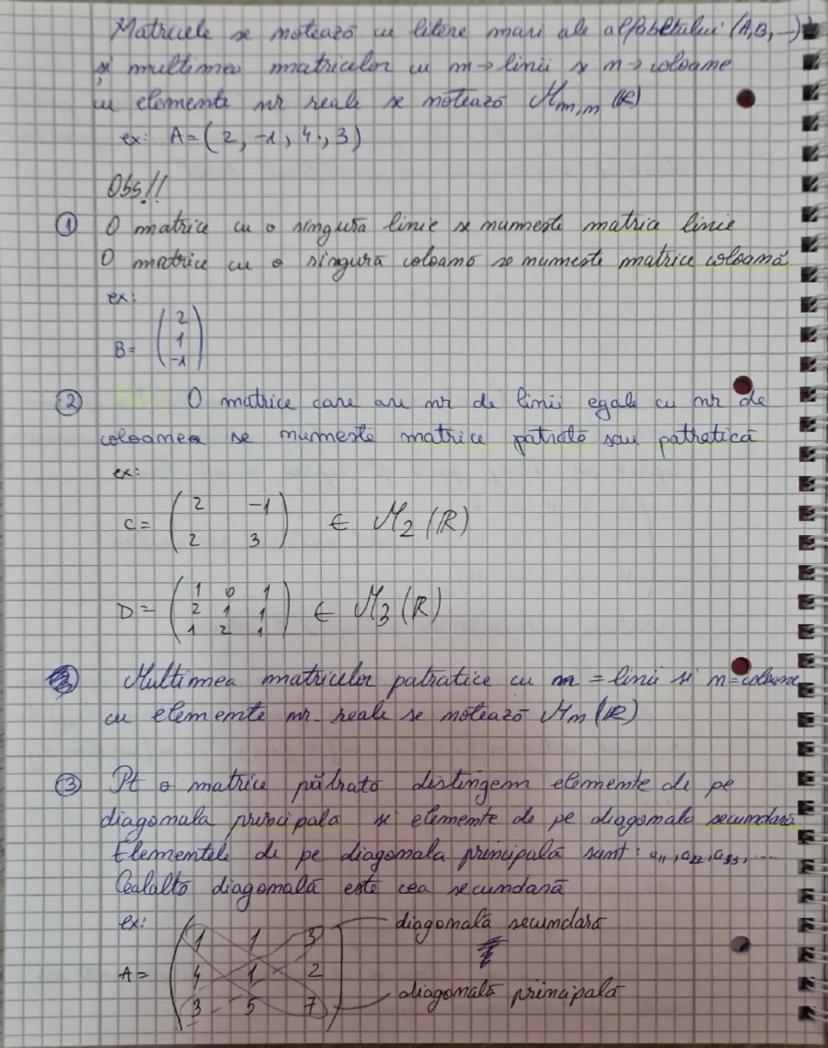 Matricele se notează cu litere mari ale alfabetului (A,B, ...)
și multimea matricelor cu m → linii și n → coloane
cu elemente nr reale se notează M m,n (R)
ex: A = (2, -1, 4, 3)
Obs!!
① O matrice cu o singură linie se numește matrice linie
O matrice cu o singură coloană se numește matrice coloană
ex:
B = ( 2
1
-1 )
② O matrice care are nr de linii egale cu nr de
coloanea se numește matrice patrată sau patratică
ex:
C = ( 2 -1
2 3 ) ∈ M2 (R)
D = ( 1 0 1
2 1 1
1 2 1 ) ∈ M3 (R)
Multimea matricelor patratice cu n = linii si n = coloane
cu elemente nr. reale se notează Mn (R)
③ Pt o matrice pătrată distingem elemente de pe
diagonala principala si elemente de pe diagonală secundară
Elementele de pe diagonala principală sunt: a11, a22, a33, ....
Cealaltă diagonală este cea secundară
ex:
diagonală secundară
A = ( 1 1 3
4 1 2
3 5 7 )
diagonală principală